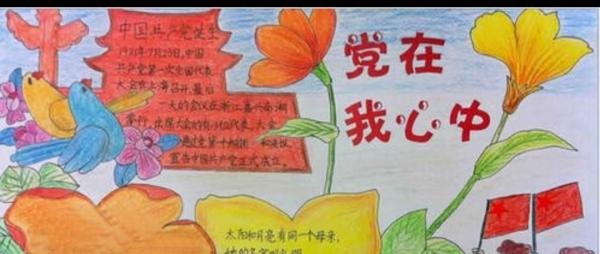 中国共产党诞生
1921年7月23日,中国
共产党第一次全国代表
大会在上海召开,最后
一天的会议在浙江嘉兴南湖
举行,出席大会的有13位代表,大会
通过党第一个纲领和决议,
宣告中国共产党正式成立。
党在
我心中
太阳和月亮有同一个母亲,